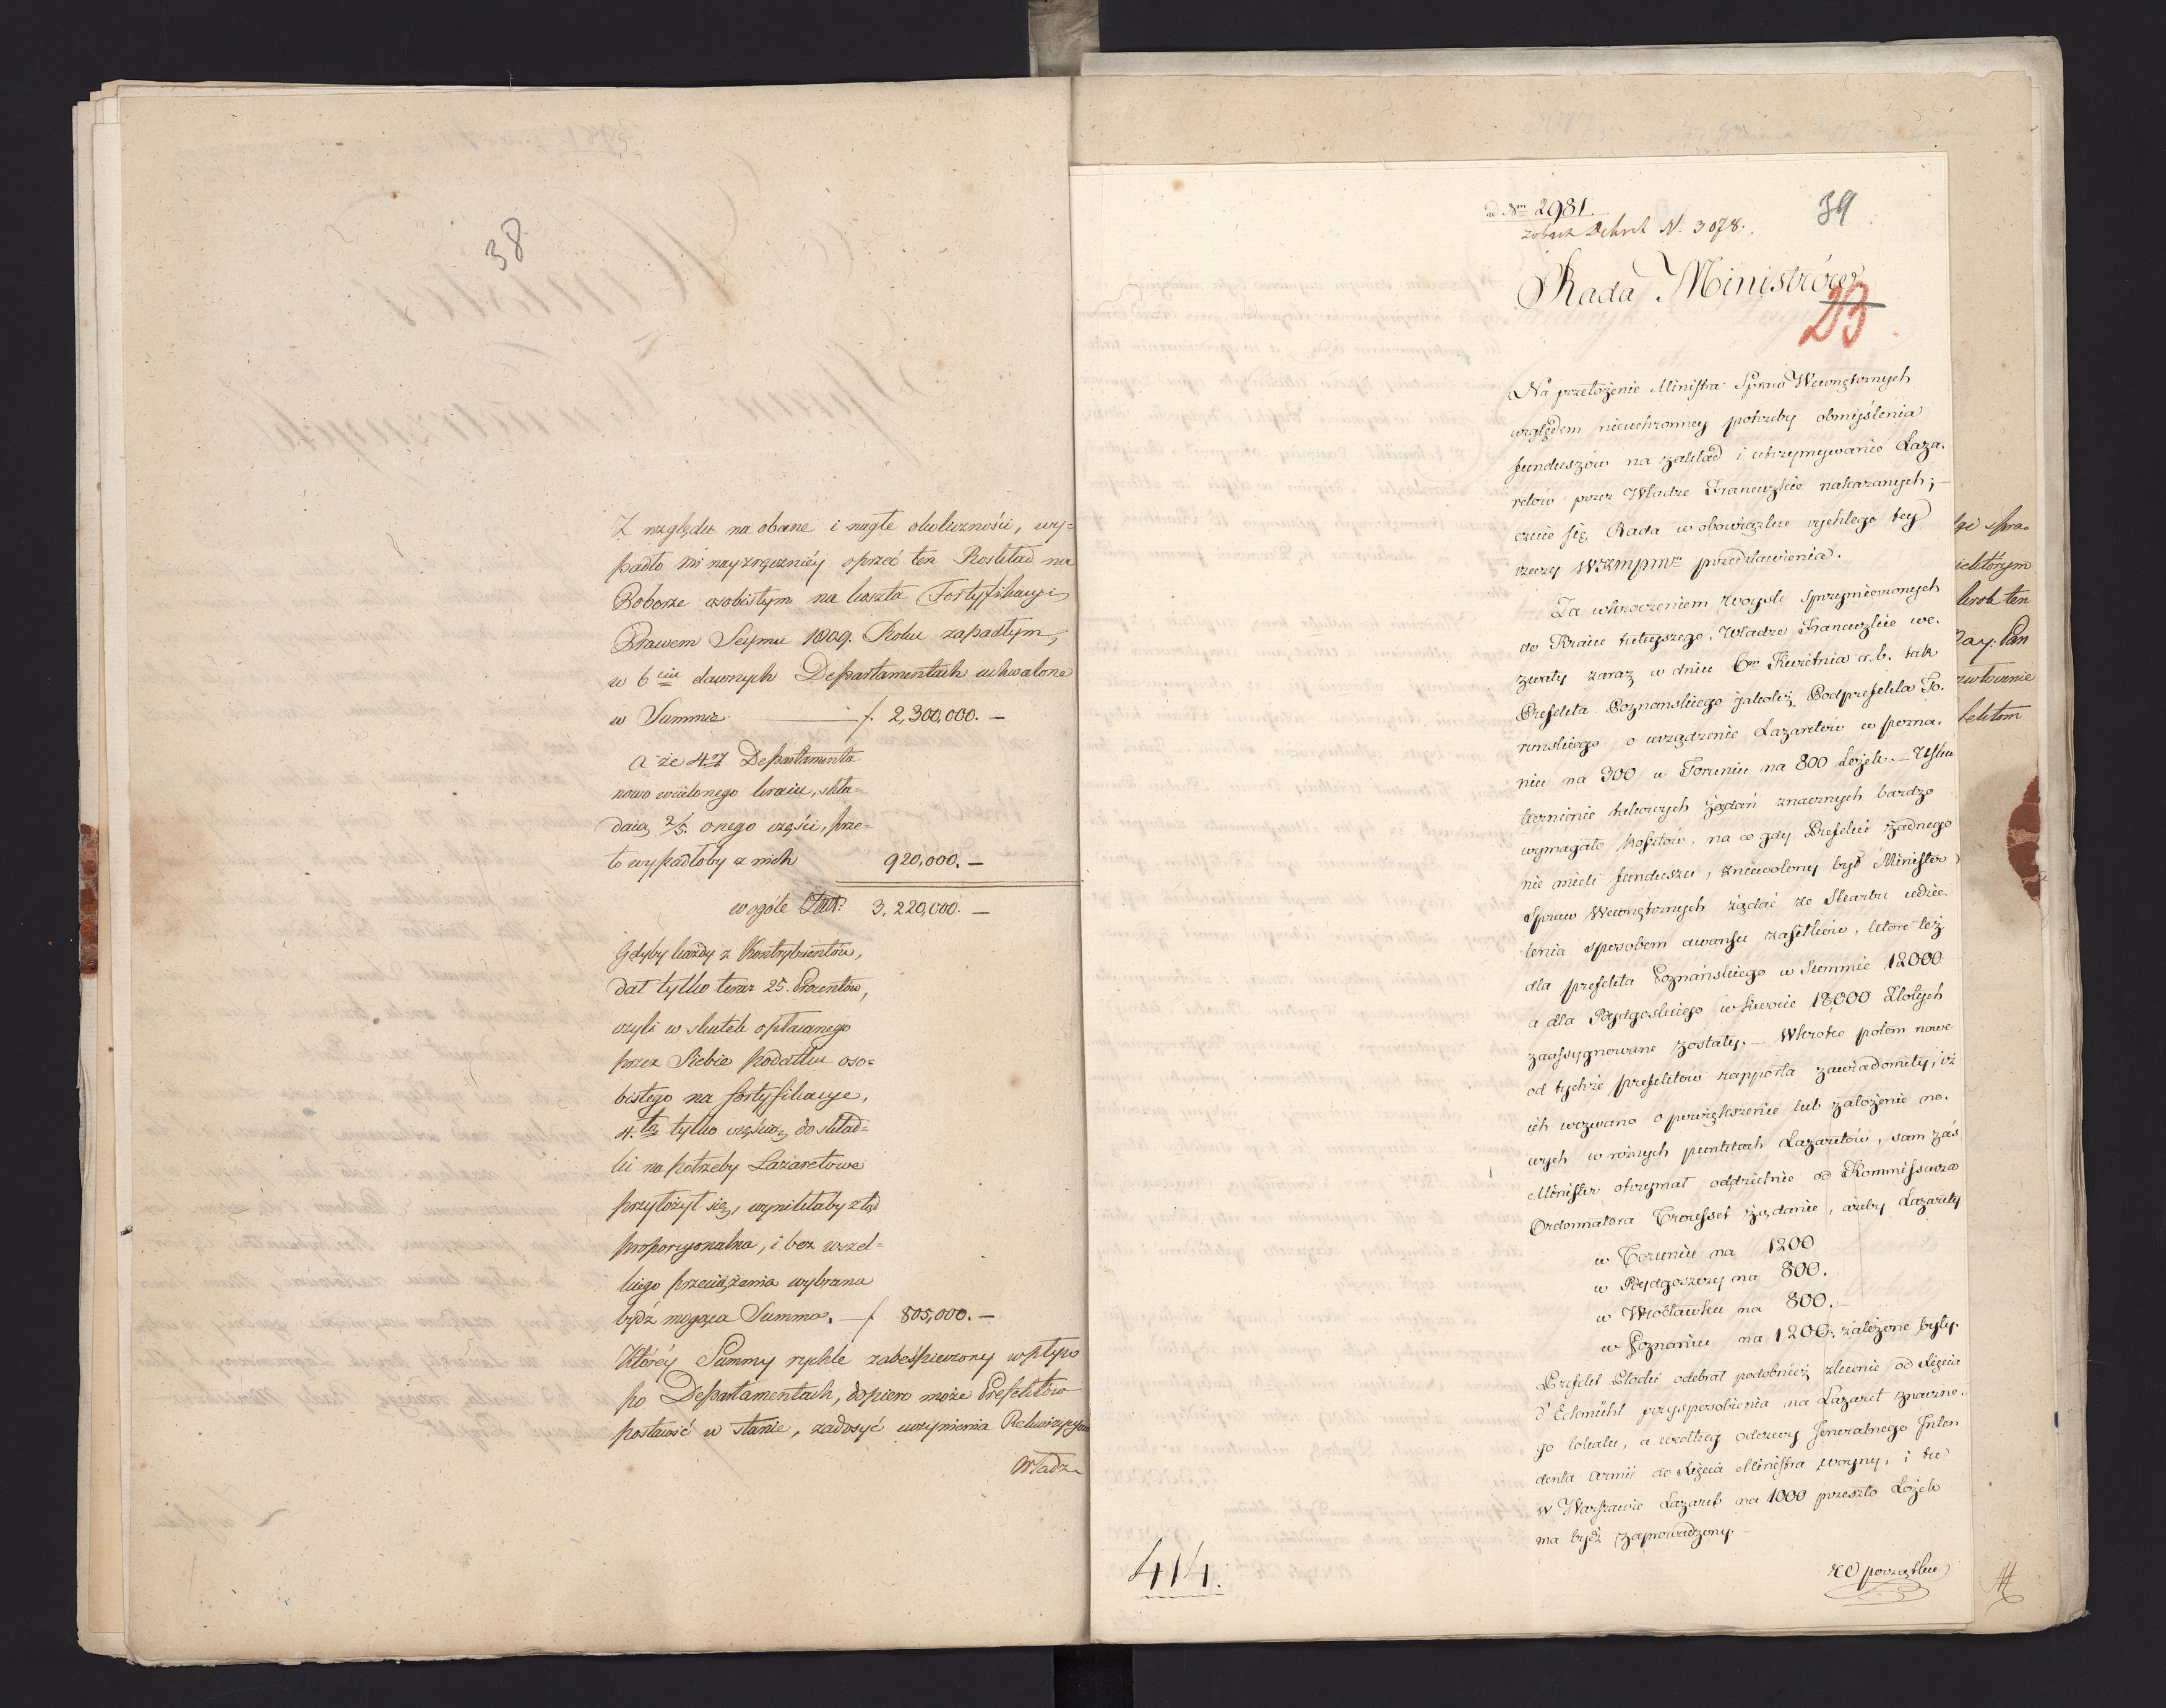 38
Z względu na obcane i nagłe okoliczności, wy=
padło mi nayzręczniéy oprzeć ten Rozkład na
Poborze osobistym na koszta Fortyfikacyi
Prawem Seymu 1809. Roku zapadłym,
w 6ciu dawnych Departamentach uchwalone
w Summie f. 2,300,000.—
a że 4ry Departamenta
nowo wcielonego kraiu, skła=
daią 2/5 onego części, prze=
to wypadłoby z nich 920,000.—
w ogóle 3,220,000.—
Gdyby każdy z Kontrybuentów,
dał tylko teraz 25. Procentów,
czyli w skutek opłacanego
przez Siebie podatku oso=
bistego na fortyfikacye,
4.tą tylko częścią do skład=
ki na potrzeby Lazaretowe
przyłożył się, wynikłaby ztąd
proporcyonalna, i bez wszel=
kiego przeciążenia wybrana
bydź mogąca Summa. — f. 805,000.—
Któréy Summy rychle zabeśpieczony wpływ
po Departamentach, dopiero może Prefektów
postawić w stanie, zadosyć uczynienia Rekwizycyom
Władz
ad Nm 2981.
zobacz Dekret N. 3078.
39
Rada Ministrów
23
Na przełożenie Ministra Spraw Wewnętrznych
względem nieuchronney potrzeby obmyślenia
funduszów na zakład i utrzymywanie Laza.
retów przez Władze Francuzkie nakazanych;—
czuie się Rada w obowiązku rychłego tey
rzeczy WKMPmu przedstawienia.
Za wkroczeniem woysk sprzymierzonych
do Kraiu tuteyszego, Władze Francuzkie we.
zwały zaraz w dniu 6m Kwietnia r.b. tak
Prefekta Poznanskiego jakoteż Podprefekta To.
runskiego o urządzenie Lazaretów w pozna.
niu na 300 w Toruniu na 800 Łożek.— Usku
tecznienie takowych żądań znacznych bardzo
wymagało kosztów, na co gdy Prefekci żadnego
nie mieli funduszu, zniewolony był Minister
Spraw Wewnętrznych żądać ze Skarbu udzie.
lenia sposobem awansu zasiłków, które też
dla prefekta Poznańskiego w Summie 12000
a dla Bydgoskiego w kwocie 18000 Złotych
zaassygnowane zostały.— Wkrotce potem nowe
od tychże prefektow rapporta zawiadomiły, iż
ich wezwano o powiększenie lub założenie no.
wych w róznych punktach Lazaretów, sam zaś
Minister otrzymał oddzielnie od Kommissarza
Ordonnatora żądanie, ażeby Lazarety
w Toruniu na 1200
w Bydgoszczy na 800.
w Włocławku na 800.
w Poznaniu na 1200. założone były.
Prefekt Płocki odebrał podobnież zlecenie od Xięcia
d'Eckmühl przysposobienia na Lazaret znaczne.
go lokalu, a według odezwy Jeneralnego Inten
denta armii do Xięcia Ministra woyny, i tu
w Warszawie Lazaret na 1000 przeszło Łożek
ma bydź zaprowadzony.—
Z początku
414.
ktorym
krok ten
Nay: Pan